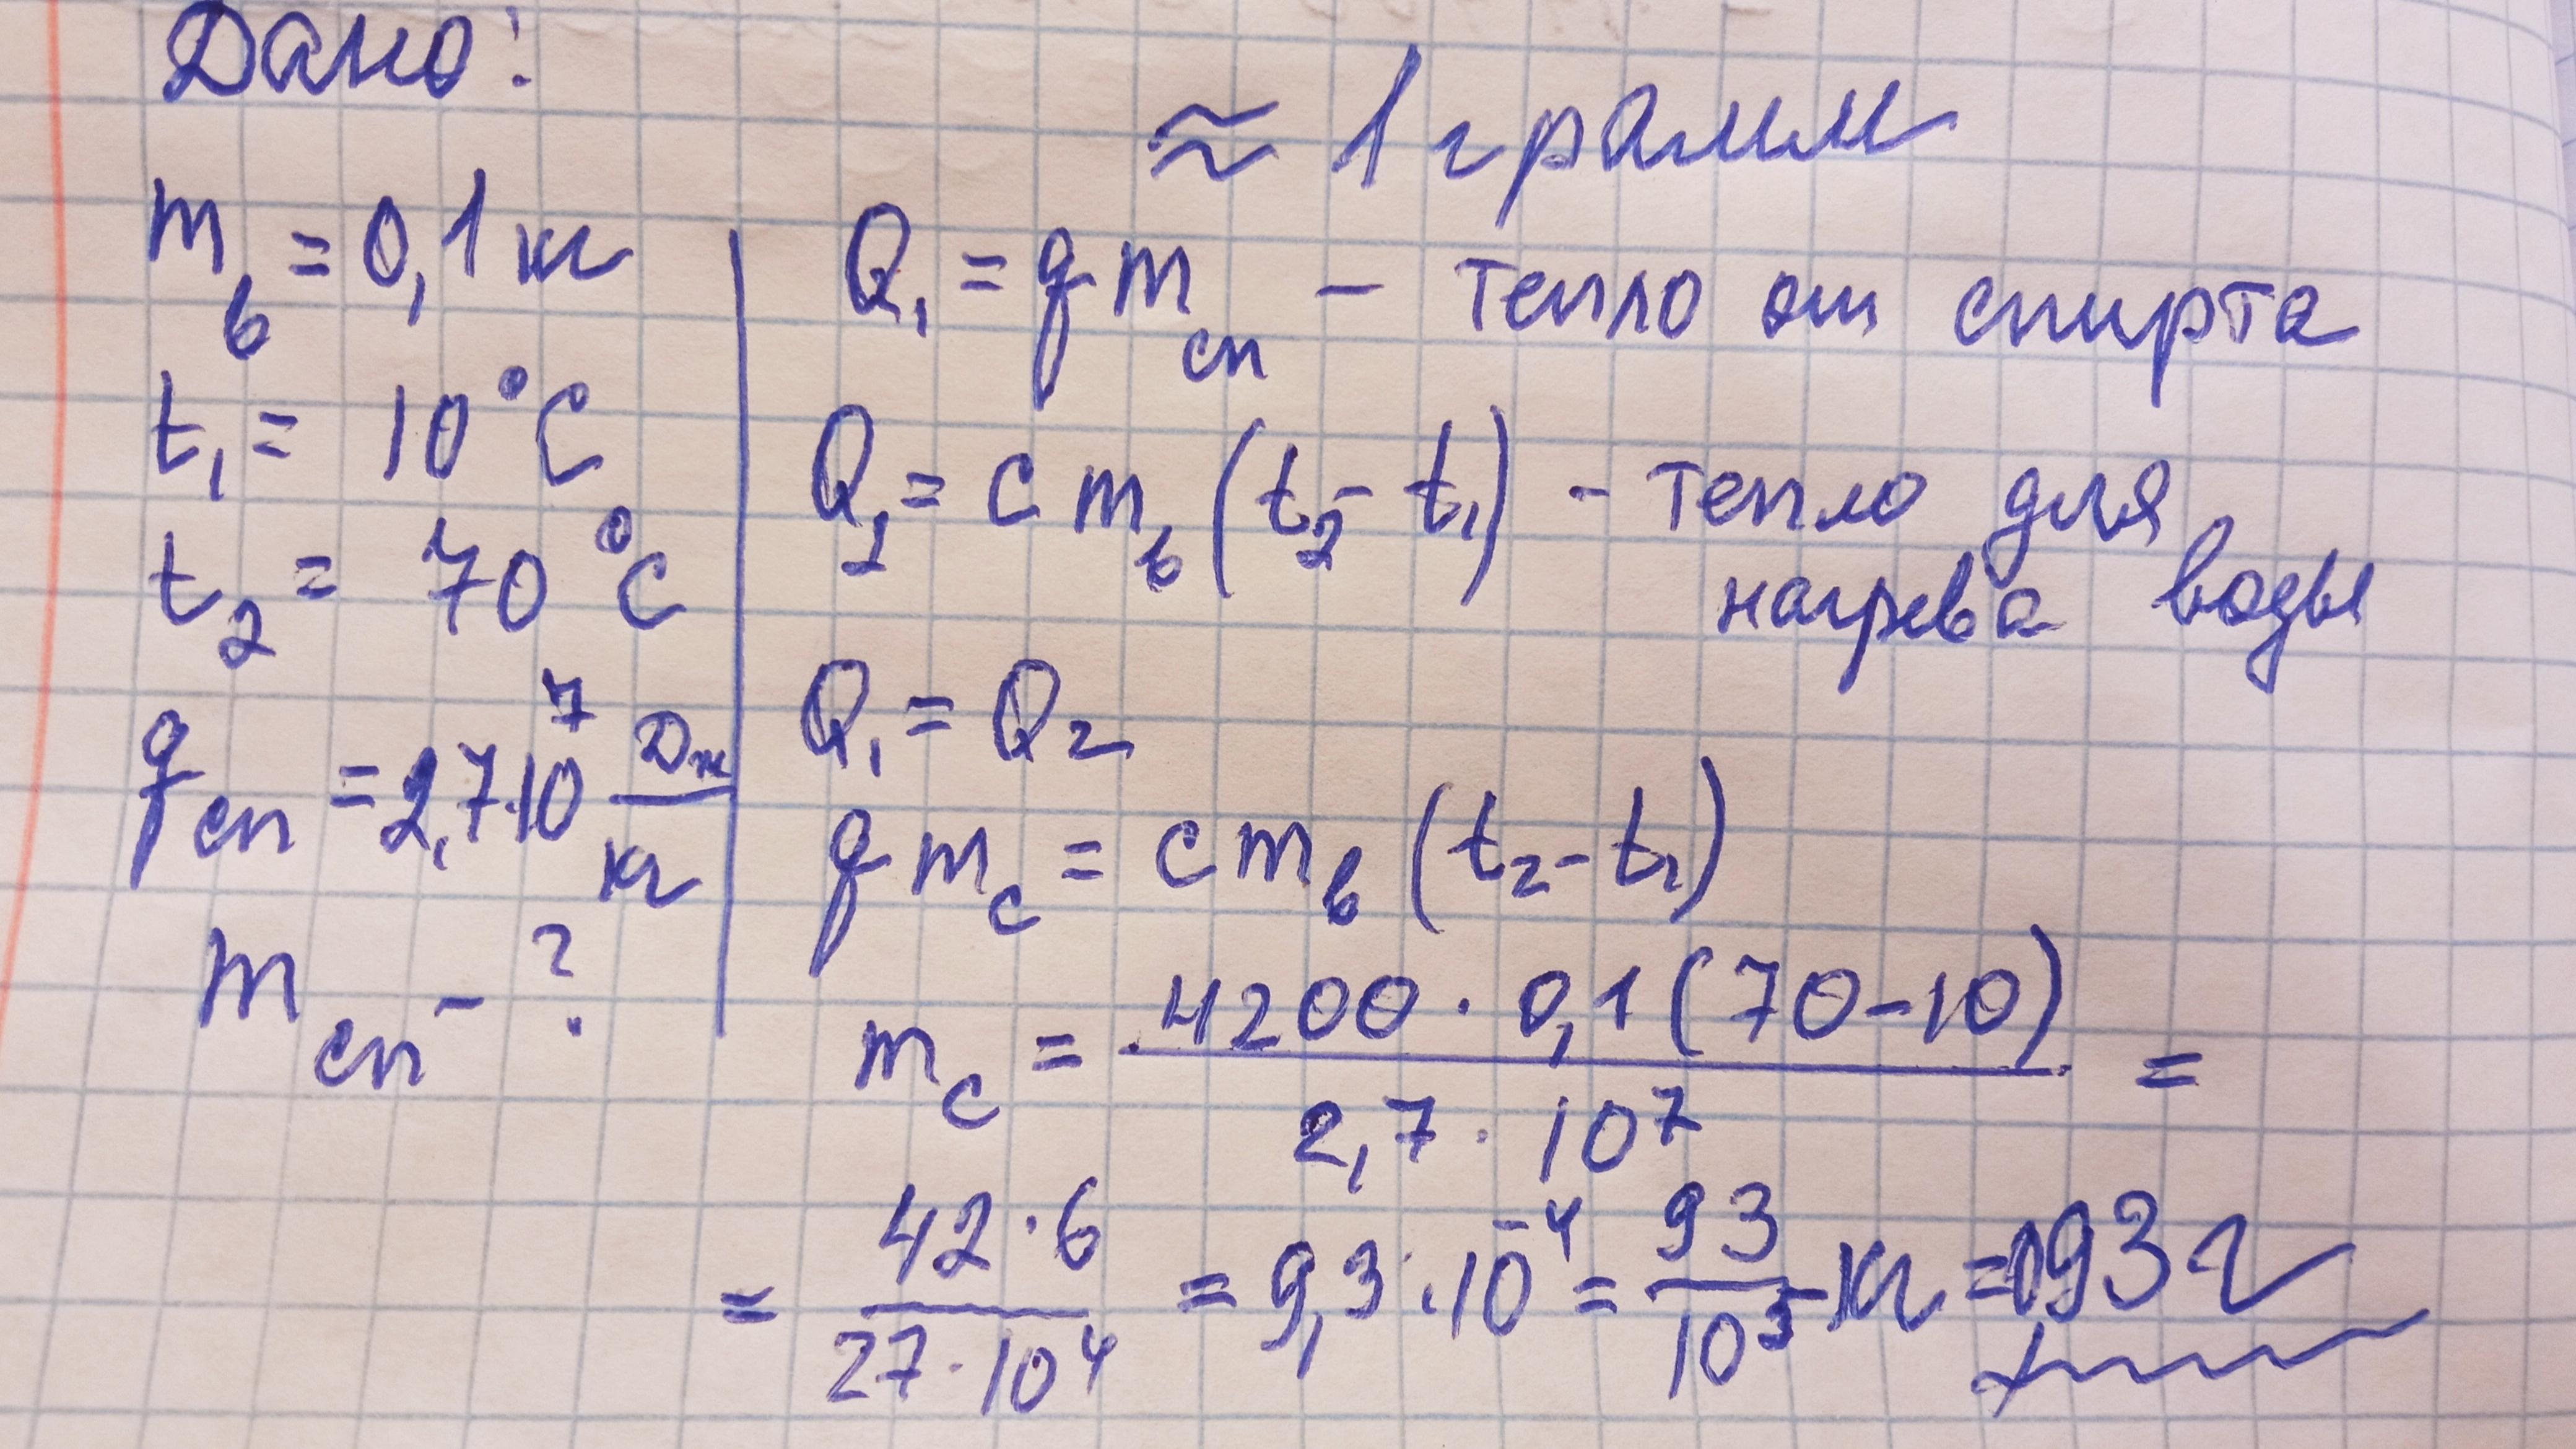 Дано:
≈ 1 грамм
m_в = 0,1 кг
t₁ = 10 °C
t₂ = 70 °C
q_сп = 2,7·10⁷ Дж/кг
m_сп - ?
Q₁ = q m_сп - тепло от спирта
Q₂ = c m_в (t₂ - t₁) - тепло для
нагрева воды
Q₁ = Q₂
q m_с = c m_в (t₂ - t₁)
m_с = 4200 · 0,1 (70-10) / 2,7 · 10⁷ =
= 42·6 / 27·10⁴ = 9,3·10⁻⁴ = 93/10⁵ кг = 0,93 г